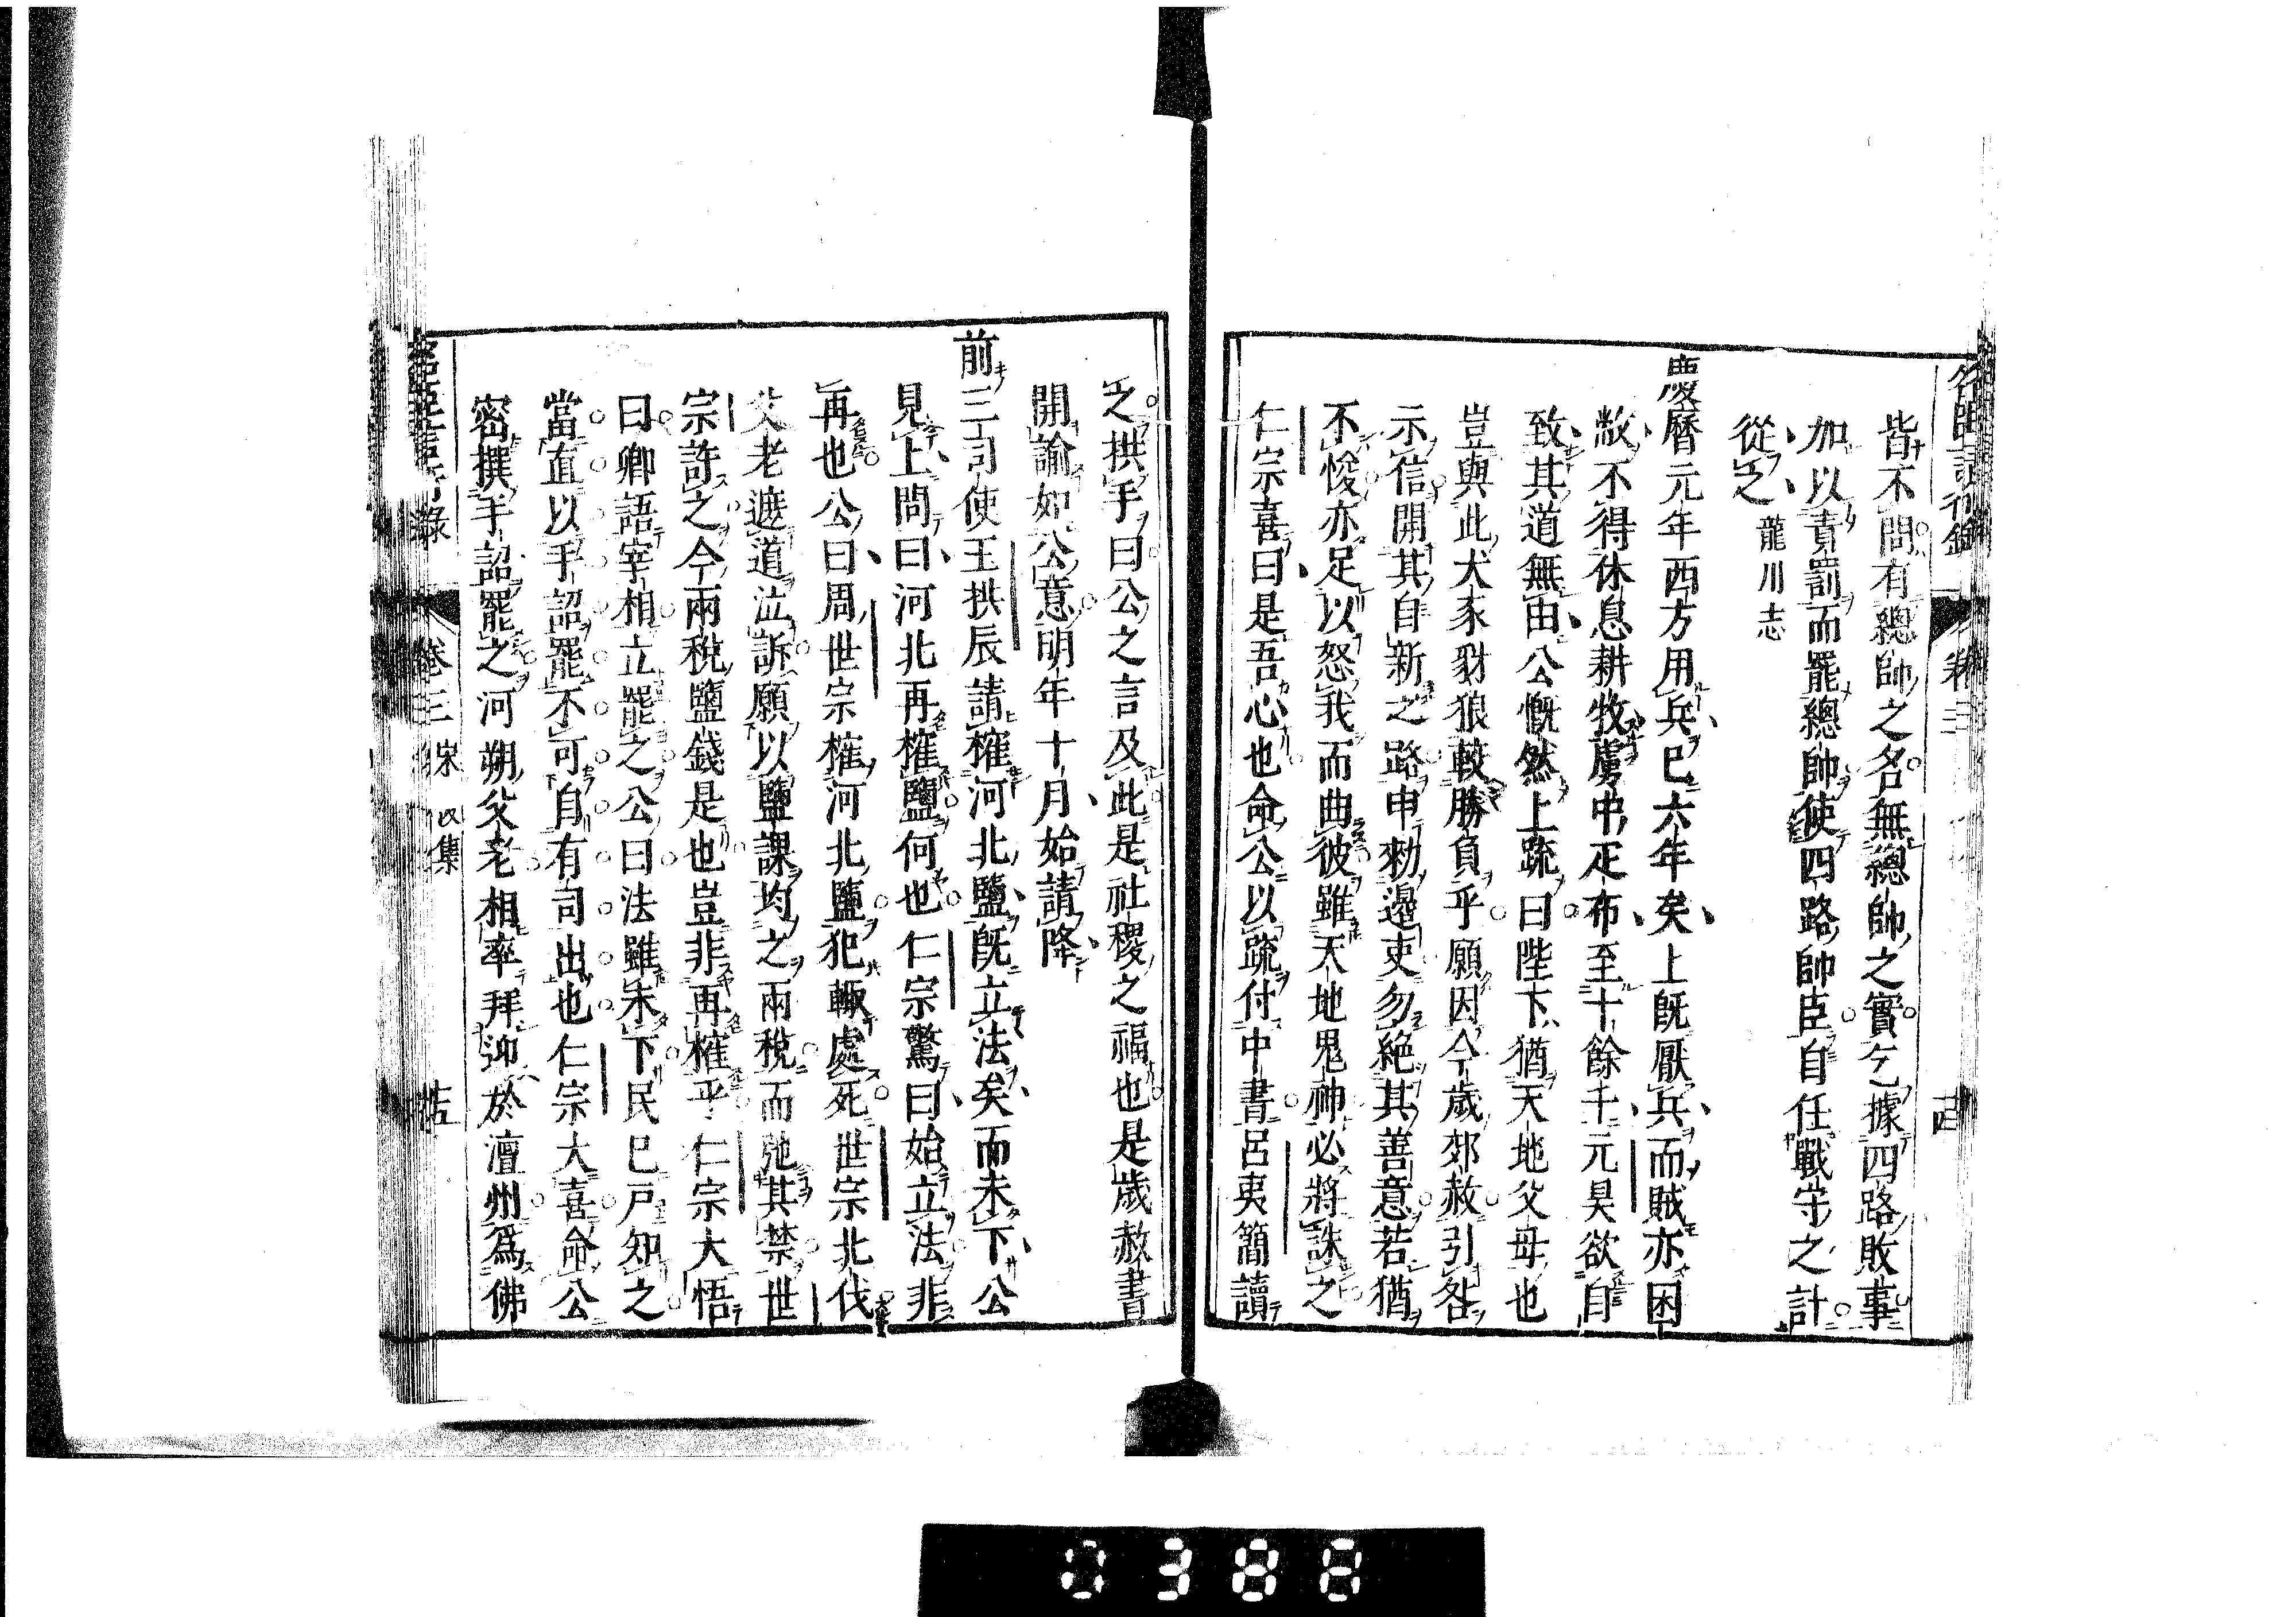 皆不問有總帥之名無總帥之實乞據四路敗事
加以責罰而罷總帥使四路帥臣自任戰守之計
從之 龍川志
慶曆元年西方用兵巳六年矣上旣厭兵而賊亦困
敝不得休息耕牧虜中疋布至十餘千元昊欲自
致其道無由公慨然上疏曰陛下猶天地父母也
豈與此犬豕豺狼較勝負乎願因今歲郊赦引咎
示信開其自新之路申勑邊吏勿絶其善意若猶
不悛亦足以怒我而曲彼雖天地鬼神必將誅之
仁宗喜曰是吾心也命公以疏付中書呂夷簡讀
之拱手曰公之言及此是社稷之福也是歲赦書
開諭如公意明年十月始請降
前三司使王拱辰請榷河北鹽旣立法矣而未下公
見上問曰河北再榷鹽何也仁宗驚曰始立法非
再也公曰周世宗榷河北鹽犯輙處死世宗北伐
父老遮道泣訴願以鹽課均之兩稅而弛其禁世
宗許之今兩稅鹽錢是也豈非再榷乎仁宗大悟
曰卿語宰相立罷之公曰法雖未下民巳戸知之
當直以手詔罷不可自有司出也仁宗大喜命公
密撰手詔罷之河朔父老相率拜迎於澶州爲佛
卷三 宋 四集 十五